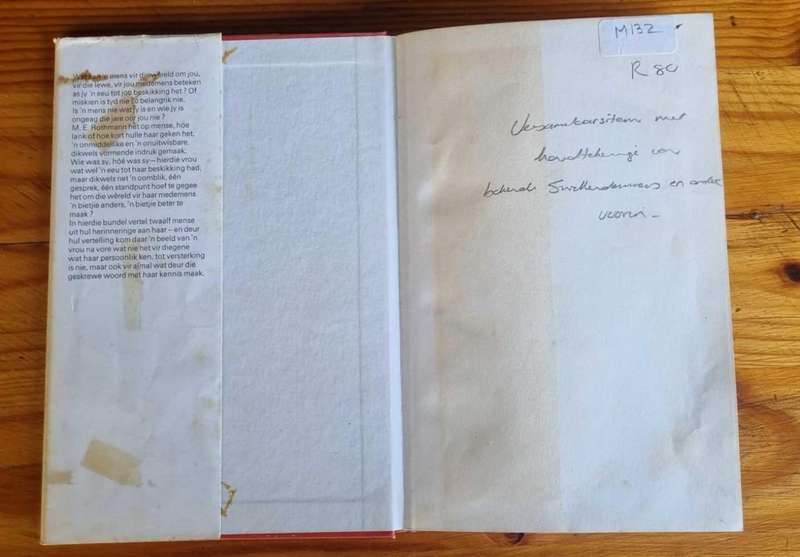 Wat kan 'n mens vir die wêreld om jou,
vir die lewe, vir jou medemens beteken
as jy 'n eeu tot jou beskikking het? Of
miskien is tyd nie so belangrik nie.
Is 'n mens nie wat jy is en wie jy is
ongeag die jare oor jou nie?
M. E. Rothmann het op mense, hoe
lank of hoe kort hulle haar geken het,
'n onmiddellike en 'n onuitwisbare,
dikwels vormende indruk gemaak.
Wie was sy, hóé was sy—hierdie vrou
wat wel 'n eeu tot haar beskikking had,
maar dikwels net 'n oomblik, één
gesprek, één standpunt hoef te gegee
het om die wêreld vir haar medemens
'n bietjie anders, 'n bietjie beter te
maak?
In hierdie bundel vertel twaalf mense
uit hul herinneringe aan haar – en deur
hul vertelling kom daar 'n beeld van 'n
vrou na vore wat nie net vir diegene
wat haar persoonlik ken, tot versterking
is nie, maar ook vir almal wat deur die
geskrewe woord met haar kennis maak.
M132
R 80
Versamelaarsitem met
handtekeninge van
bekende Swellendammers en ander
voorin –